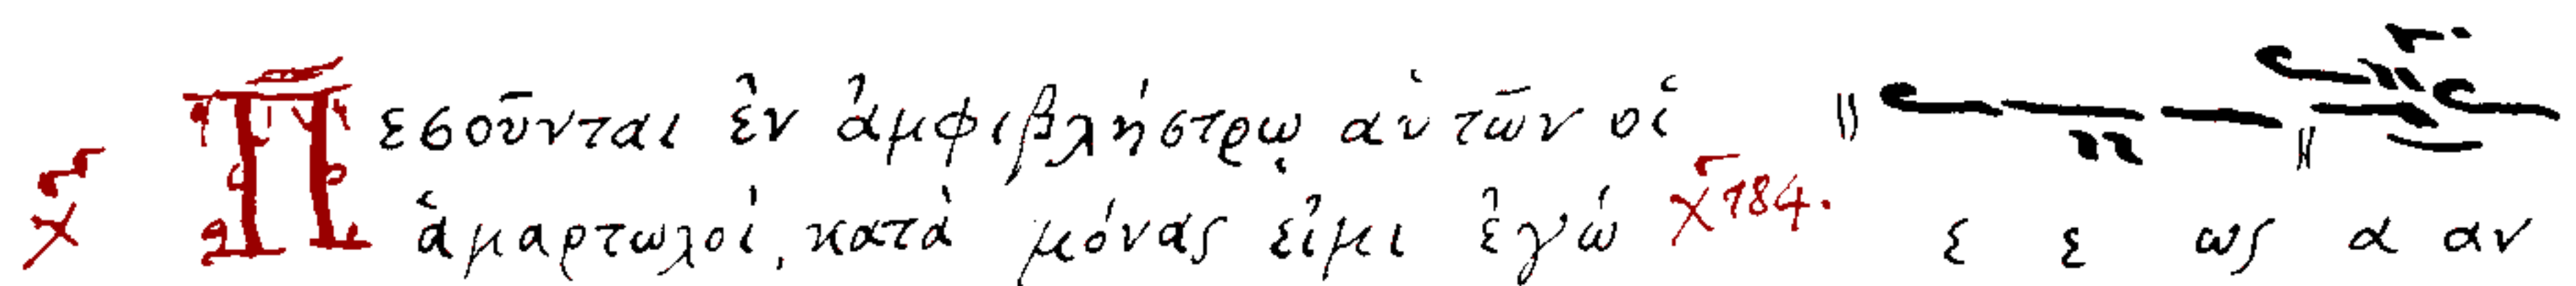 Πεσοῦνται ἐν ἀμφιβλήστρῳ αὐτῶν οἱ
ἁμαρτωλοί, κατὰ μόνας εἰμὶ ἐγώ χ 184. ε ε ως α αν